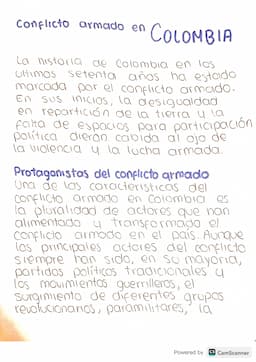 Conflicto armado en COLOMBIA
La historia de Colombia en los
últimos setenta años ha estado
marcada por el conflicto armado.
En sus inicios, la desigualdad
en repartición de la tierra y la
falta de espacios para participación
política dieron cabida al ojo de
la violencia y la lucha armada.
Protagonistas del conflicto armado
Una de las características del
conflicto armado en Colombia es
la pluralidad de actores que han
alimentado y transformado el
conflicto armado en el país. Aunque
los principales actores del conflicto
siempre han sido, en su mayoría,
partidos políticos tradicionales y
los movimientos guerrilleros, el
surgimiento de diferentes grupos
revolucionarios, paramilitares, la
Powered by CS CamScanner